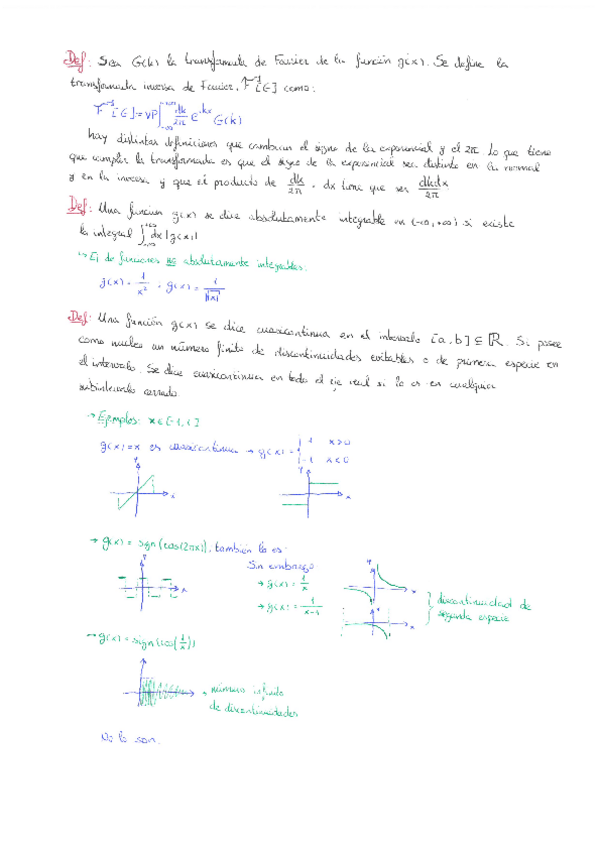 Def: Sea G(k) la transformada de Fourier de la función g(x). Se define la
transformada inversa de Fourier, F⁻¹[G] como:
F⁻¹[G] = VP∫_{-∞}^{+∞} dk/2π e^{ikx} G(k)
hay distintas definiciones que cambian el signo de la exponencial y el 2π. Lo que tiene
que cumplir la transformada es que el signo de la exponencial sea distinto en la normal
y en la inversa y que el producto de dk/2π · dx tiene que ser dkdx/2π
Def: Una función g(x) se dice absolutamente integrable en (-∞,+∞) si existe
la integral ∫_{-∞}^{+∞} dx|g(x)|
Ej de funciones NO absolutamente integrables:
g(x) = 1/x² · g(x) = 1/√|x|
Def: Una función g(x) se dice cuasicontinua en el intervalo [a,b] ⊆ ℝ. Si posee
como mucho un número finito de discontinuidades evitables o de primera especie en
el intervalo. Se dice cuasicontinua en todo el eje real si lo es en cualquier
subintervalo cerrado
→ Ejemplos: x∈[-1,1]
g(x) = x es cuasicontinua → g(x) = { 1 x>0
-1 x<0
y x
y x
→ g(x) = sign(cos(2πx)), también lo es.
Sin embargo
→ g(x) = 1/x
→ g(x) =
discontinuidad de
segunda especie
→ g(x) = sign(cos(1/x))
→ número infinito
de discontinuidades
No lo son.